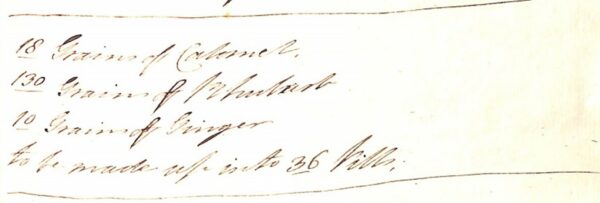 18 Grains of Calomel.
130 Grains of Rhubarb
10 Grains of Ginger
to be made up into 36 Pills.